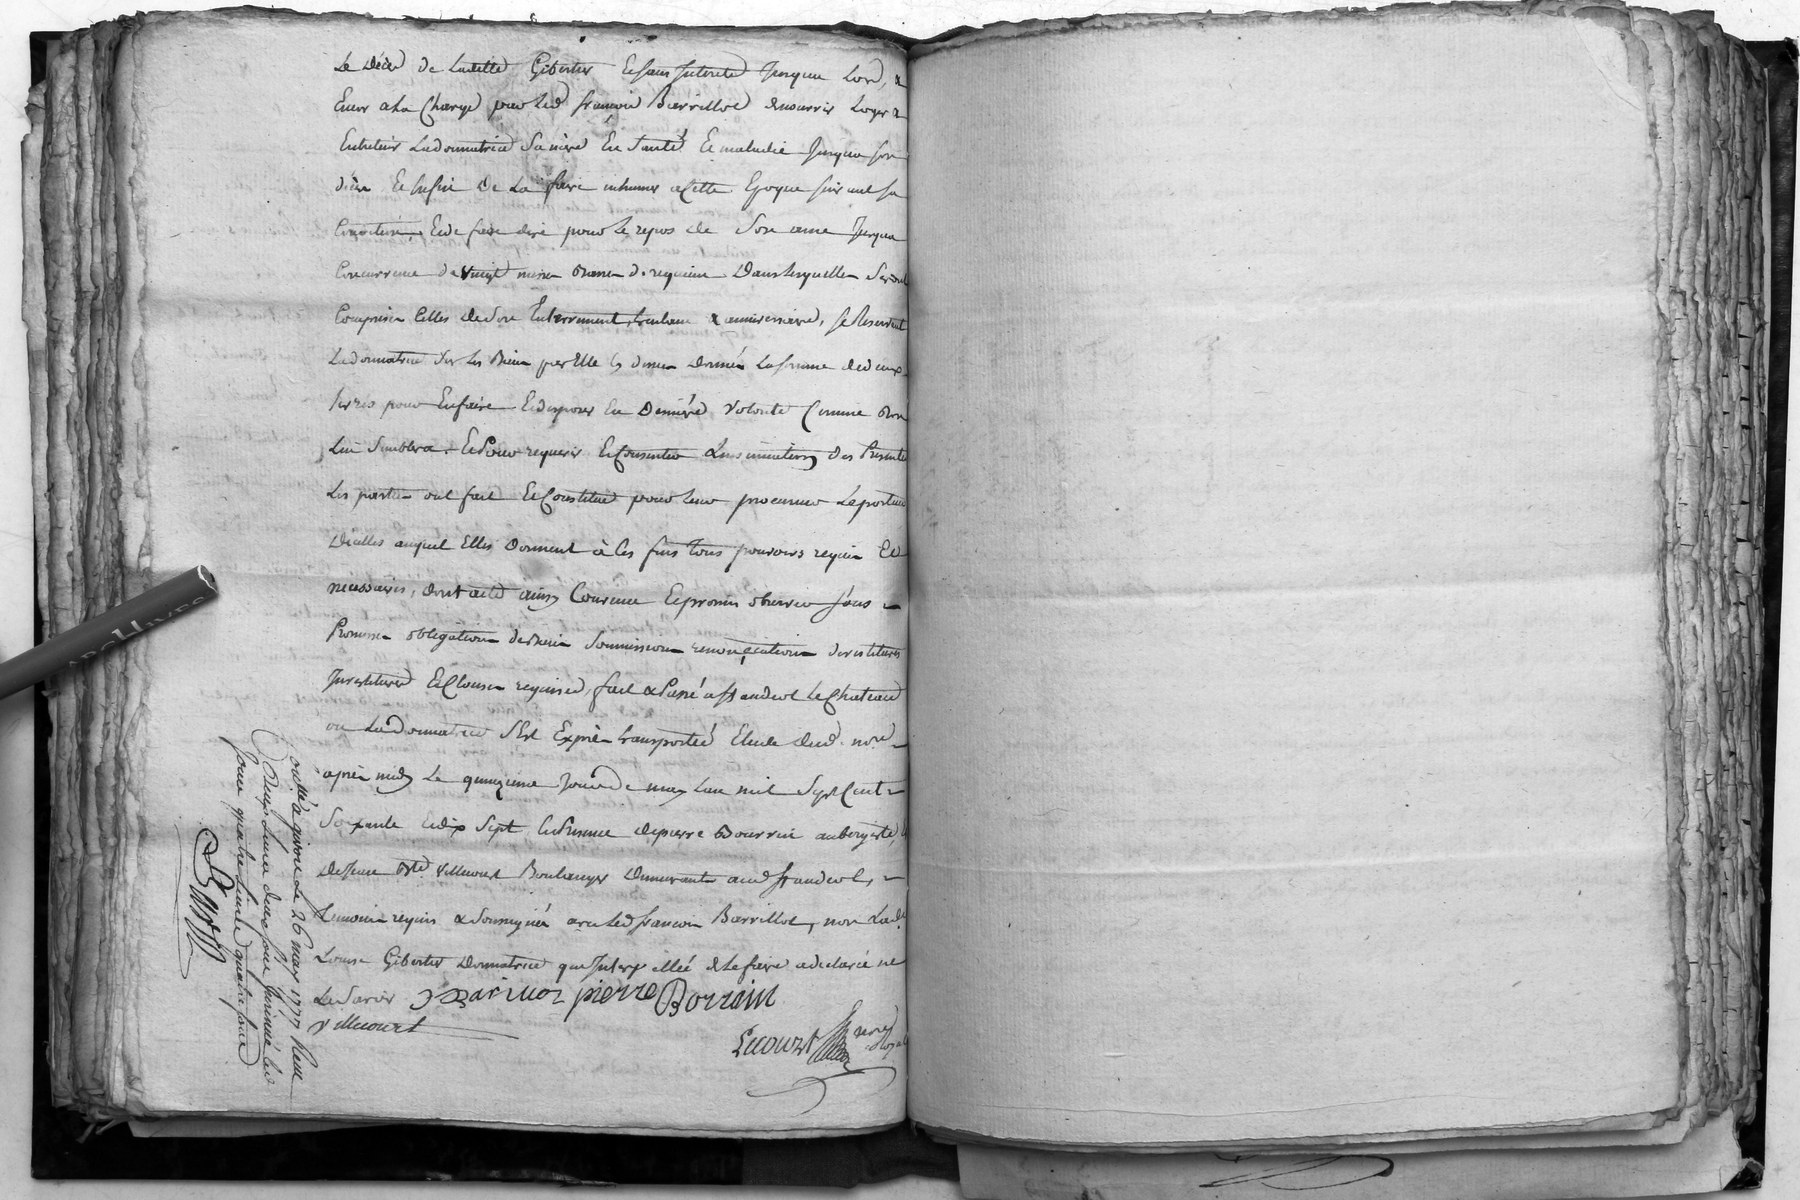 Le décès de laditte Gibertier Et sans Interets Jusques Lors, &
Encor a la Charge pour led françois Barrillot de nourrir Loger &
Entretenir La donnatrice Sa mere En Santé Et maladie Jusqua son
décès Et Enfin De La faire inhumer a Cette Epoque suivant sa
Condition, Et de faire dire pour le repos de Son ame Jusqua
Concurrence de vingt messes de requiem Dans lesquelles Seront
Comprises Celles de Son Enterrement, & anniversaire, se Reservant
La donnatrice Sur les Biens par Elle Cy dessus Donnés La somme de
pour En faire Et disposer En Derniére Volonté Comme Bon
Lui Semblera. Et Pour requerir Et Consentir L'insinuation des Presentes
Les parties ont fait Et Constitué pour leur procureur Le porteur
D'icelles auquel Elles Donnent à Ces fins tous pouvoirs requis Et
necessaires, dont acte ainsy Convenu Et promis observer sous
Promesses obligations de Biens Soummissions renonciations
Et Clauses requises, fait & Passé a St andeol Le Chateau
ou La donnatrice s'Est Exprès transportée Etude dud. nore
après midy Le quinzieme Jour de may L'an mil Sept Cent
Soixante Et dix Sept En Presence de pierre Bourrin aubergiste,
de Jean Bte Villecourt Boulanger Demeurants aud St andeol,
temoins requis & Soussignés avec led françois Barrillot, non Lad.
Louise Gibertier Donnatrice que Interpellée de le faire a declaré ne
Le Savoir Barillot pierre Borrain
Villecourt
Lecourt nore
Royal
Conllé a givors Le 26 may 1777 Reçu
Bruyas